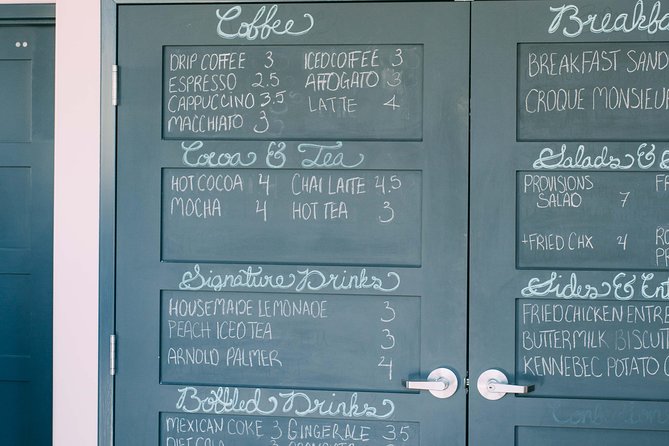 Coffee
DRIP COFFEE 3 ICED COFFEE 3
ESPRESSO 2.5 AFFOGATO 3
CAPPUCCINO 3.5 LATTE 4
MACCHIATO 3
Cocoa & Tea
HOT COCOA 4 CHAI LATTE 4.5
MOCHA 4 HOT TEA 3
Signature Drinks
HOUSEMADE LEMONADE 3
PEACH ICED TEA 3
ARNOLD PALMER 4
Bottled Drinks
MEXICAN COKE 3 GINGERALE 3.5
DIET COLA
Breakfa
BREAKFAST SAND
CROQUE MONSIEUR
Salads & S
PROVISIONS
SALAD 7
+FRIED CHX 4
Sides & Ent
FRIED CHICKEN ENTRE
BUTTERMILK BISCUIT
KENNEBEC POTATO C